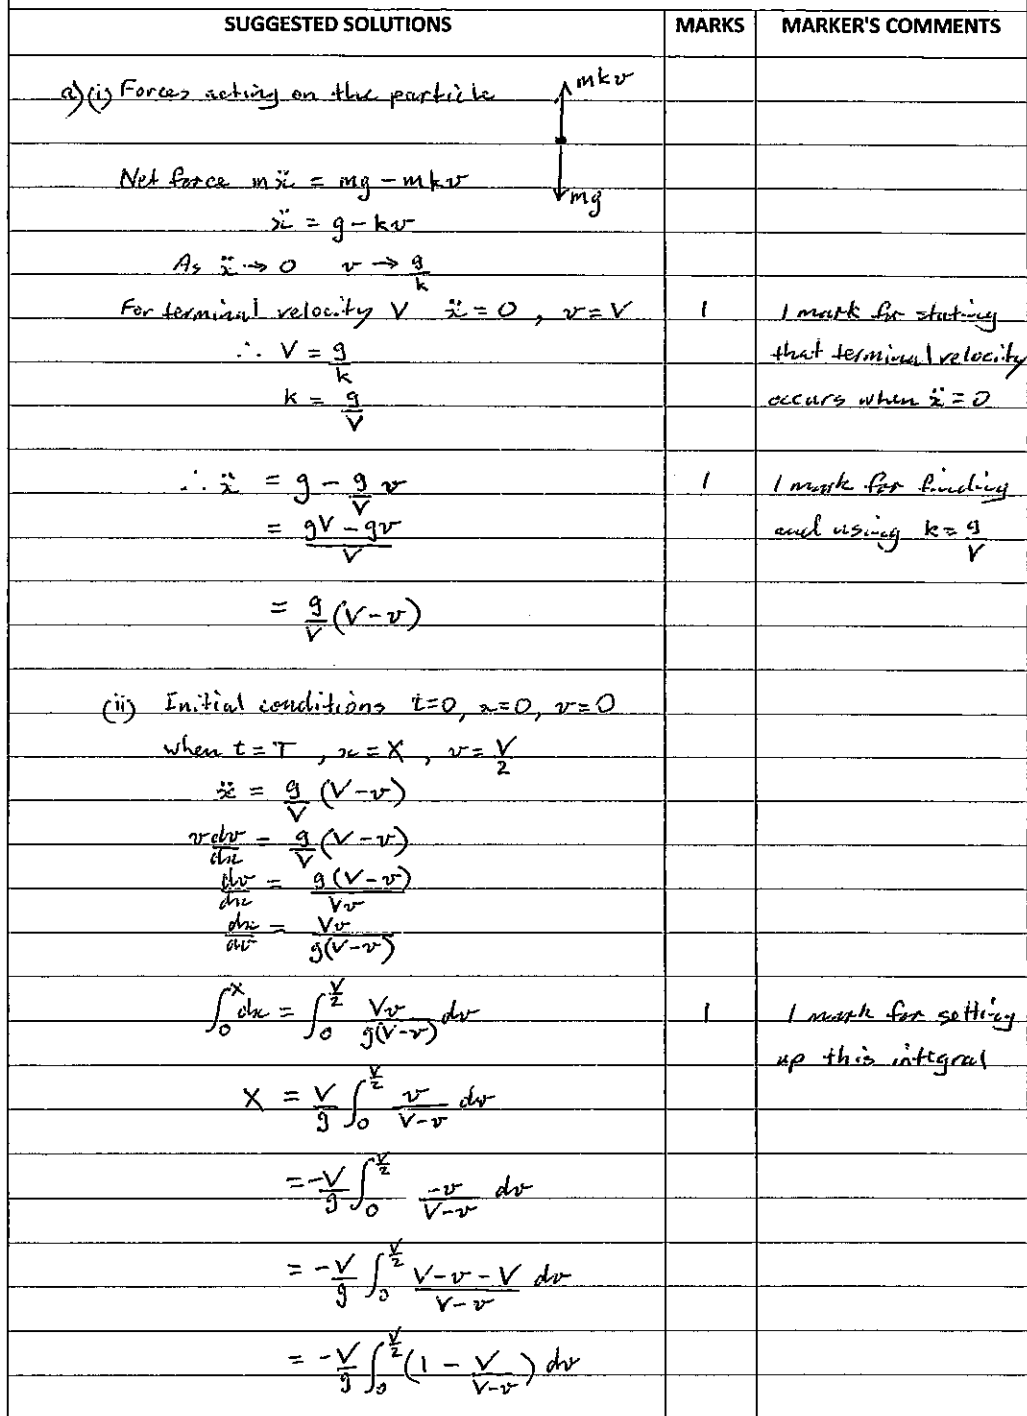 SUGGESTED SOLUTIONS MARKS MARKER'S COMMENTS
a) (i) Forces acting on the particle
mkv
mg
Net force mẍ = mg - mkv
ẍ = g - kv
As ẍ → 0 v → g/k
For terminal velocity V ẍ = 0, v = V 1 1 mark for stating
∴ V = g/k that terminal velocity
k = g/V occurs when ẍ = 0
∴ ẍ = g - g/V v 1 1 mark for finding
= (gV - gv)/V and using k = g/V
= g/V (V - v)
(ii) Initial conditions t=0, x=0, v=0
when t = T, x = X, v = V/2
ẍ = g/V (V - v)
v dv/dx = g/V (V - v)
dv/dx = g(V - v)/Vv
dx/dv = Vv/g(V - v)
∫₀^X dx = ∫₀^(V/2) Vv/g(V-v) dv 1 1 mark for setting
up this integral
X = V/g ∫₀^(V/2) v/(V-v) dv
= -V/g ∫₀^(V/2) -v/(V-v) dv
= -V/g ∫₀^(V/2) (V-v-V)/(V-v) dv
= -V/g ∫₀^(V/2) (1 - V/(V-v)) dv